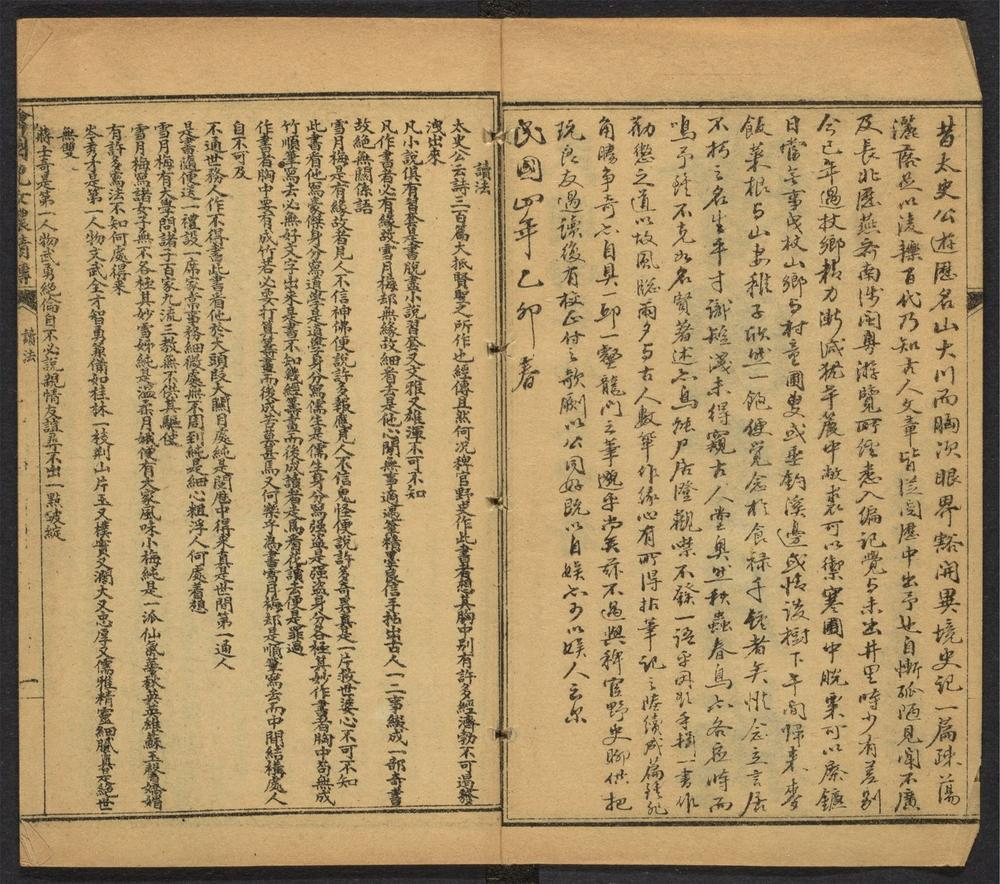 昔太史公遊歷名山大川而胸次眼界豁開異境史記一篇疎蕩
灑落足以凌轢百代乃知古人文章皆從閱歷中出予也自慚孤陋見聞不廣
及長北歷燕齊南涉閩粵游覽所經悉入編記覺與未出井里時少有差别
今已年過杖鄉精力漸減猶幸簏中敝裘可以禦寒囷中脫粟可以療饑
日當無事或杖山鄉與村童圃叟或垂釣溪邊或清談樹下午間歸來麥
飯菜根與山妻稚子欣然一飽便覺愈於食祿千鍾者矣惟念立言居
不朽之名生平才識短淺未得窺古人堂奥然秋蟲春鳥亦各應時而
鳴予雖不克如名賢著述亦烏能尸居澄觀噤不發一語乎因於手摘一書作
勸懲之道以故風窗雨夕與古人數輩作緣心有所得拈筆記之陸續成篇雖非
角勝爭奇亦自具一邱一壑龍門之筆邈乎尚矣茲不過與稗官野史聊供把
玩良友過讀復有校正付之剞劂以公同好既以自娛亦可以娛人云爾
民國四年乙卯春
讀法
太史公云詩三百篇大抵賢聖之所作也經傳且然何況稗官野史作此書者想其胸中别有許多經濟勃不可遏發
洩出來
凡小說俱有習套是書脫盡小說習套又文雅又雄渾不可不知
凡作書者必有緣故雪月梅却無緣故細看去是他心閒無事適遇筆精墨良信手拈出古人一二事綴成一部奇書
故絕無關係語
雪月梅是有緣故者見人不信神佛便說許多報應見人不信鬼怪便說許多奇異真是一片救世婆心不可不知
此書看他寫豪傑身分寫道學是道學身分寫儒生是儒生身分寫強盜是強盜身分各極其妙作書者胸中苟無成
竹順筆寫去必無好文字出來是書不知幾經籌畫而後成讀者走馬看花讀去便是罪過
作書者胸中要有成竹若必要打算籌畫而後成苦莫甚焉又何樂乎為書雪月梅却是順筆寫去而中間結構處人
自不可及
不通世務人作不得書此書看他於大頭段大關目處純是閱歷中得來真是世間第一通人
是書隨便送一禮設一席家常事務細微處無不周到純是細心粗浮人何處着想
雪月梅有大學問諸子百家九流三教無不供其驅使
雪月梅寫諸女子無不各極其妙雪姊純是溫柔月娥便有大家風味小梅純是一派仙風華秋英英雄蘇玉馨嬌媚
有許多寫法不知何處得來
岑秀才是第一人物文武全才智勇兼備如桂林一枝荆山片玉又樸實又濶大又忠厚又儒雅精靈細膩真是絕世
無雙
蔣士奇是第一人物武勇絕倫自不必說親情友誼尋不出一點破綻
讀法
一